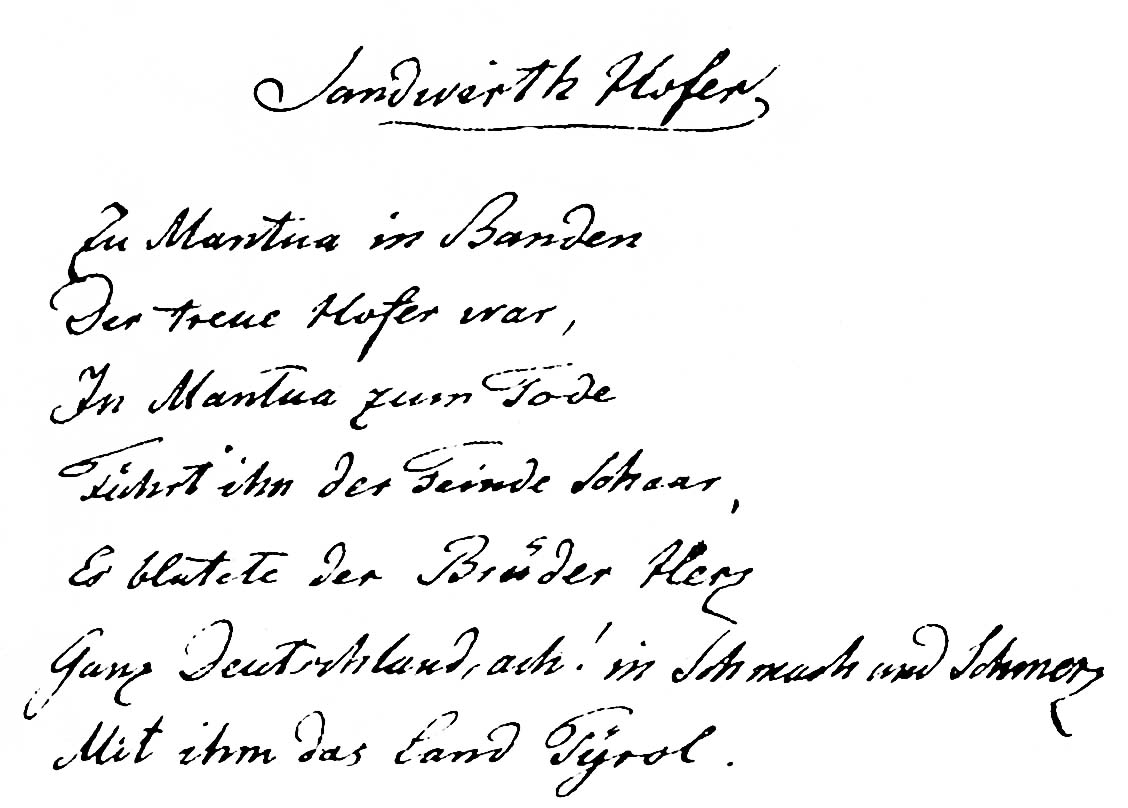 Sandwirth Hofer
Zu Mantua in Banden
Der treue Hofer war,
In Mantua zum Tode
Führt ihn der Feinde Schaar,
Es blutete der Brüder Herz
Ganz Deutschland, ach! in Schmach und Schmerz
Mit ihm das Land Tÿrol.